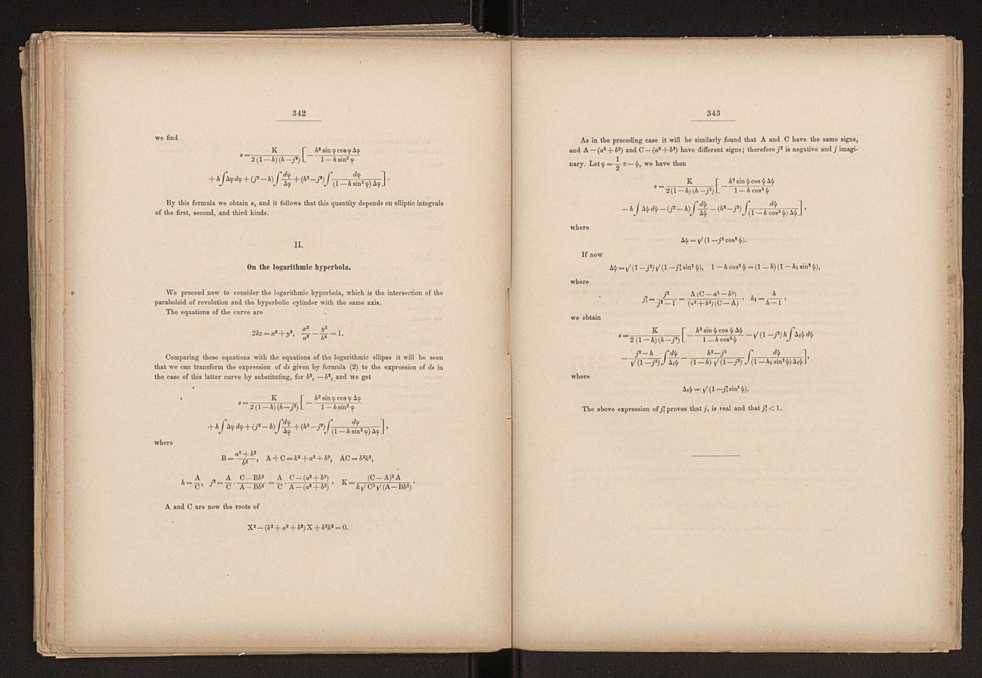 342
we find
s = K / 2 (1 — h) (h — j²) [ — h² sin φ cos φ Δφ / 1 — h sin² φ
+ h ∫ Δφ dφ + (j² — h) ∫ dφ / Δφ + (h² — j²) ∫ dφ / (1 — h sin² φ) Δφ ] .
By this formula we obtain s, and it follows that this quantity depends on elliptic integrals
of the first, second, and third kinds.
II.
On the logarithmic hyperbola.
We proceed now to consider the logarithmic hyperbola, which is the intersection of the
paraboloid of revolution and the hyperbolic cylinder with the same axis.
The equations of the curve are
2kz = x² + y², x² / a² — y² / b² = 1.
Comparing these equations with the equations of the logarithmic ellipse it will be seen
that we can transform the expression of ds given by formula (2) to the expression of ds in
the case of this latter curve by substituting, for b², — b², and we get
s = K / 2 (1 — h) (h — j²) [ — h² sin φ cos φ Δφ / 1 — h sin² φ
+ h ∫ Δφ dφ + (j² — h) ∫ dφ / Δφ + (h² — j²) ∫ dφ / (1 — h sin² φ) Δφ ] ,
where
B = a² + b² / b² , A + C = k² + a² + b², AC = b²k²,
h = A / C , j² = A / C · C — Bb² / A — Bb² = A / C · C — (a² + b²) / A — (a² + b²) , K = (C — A)² A / k √ C³ √ (A — Bb²) .
A and C are now the roots of
X² — (k² + a² + b²) X + b²k² = 0.
343
As in the preceding case it will be similarly found that A and C have the same signs,
and A — (a² + b²) and C — (a² + b²) have different signs; therefore j² is negative and j imagi-
nary. Let φ = 1 / 2 π — ψ, we have then
s = K / 2 (1 — h) (h — j²) [ — h² sin ψ cos ψ Δψ / 1 — h cos² ψ
— h ∫ Δψ dψ — (j² — h) ∫ dψ / Δψ — (h² — j²) ∫ dψ / (1 — h cos² ψ) Δψ ] ,
where
Δψ = √ (1 — j² cos² ψ).
If now
Δψ = √ (1 — j²) √ (1 — j₁² sin² ψ), 1 — h cos² ψ = (1 — h) (1 — h₁ sin² ψ),
where
j₁² = j² / j² — 1 = A (C — a² — b²) / (a² + b²) (C — A) , h₁ = h / h — 1 ,
we obtain
s = K / 2 (1 — h) (h — j²) [ — h² sin ψ cos ψ Δψ / 1 — h cos² ψ — √ (1 — j²) h ∫ Δ₁ψ dψ
— j² — h / √ (1 — j²) ∫ dψ / Δ₁ψ — h² — j² / (1 — h) √ (1 — j²) ∫ dψ / (1 — h₁ sin² ψ) Δ₁ψ ] ,
where
Δ₁ψ = √ (1 — j₁² sin² ψ).
The above expression of j₁² proves that j₁ is real and that j₁² < 1.